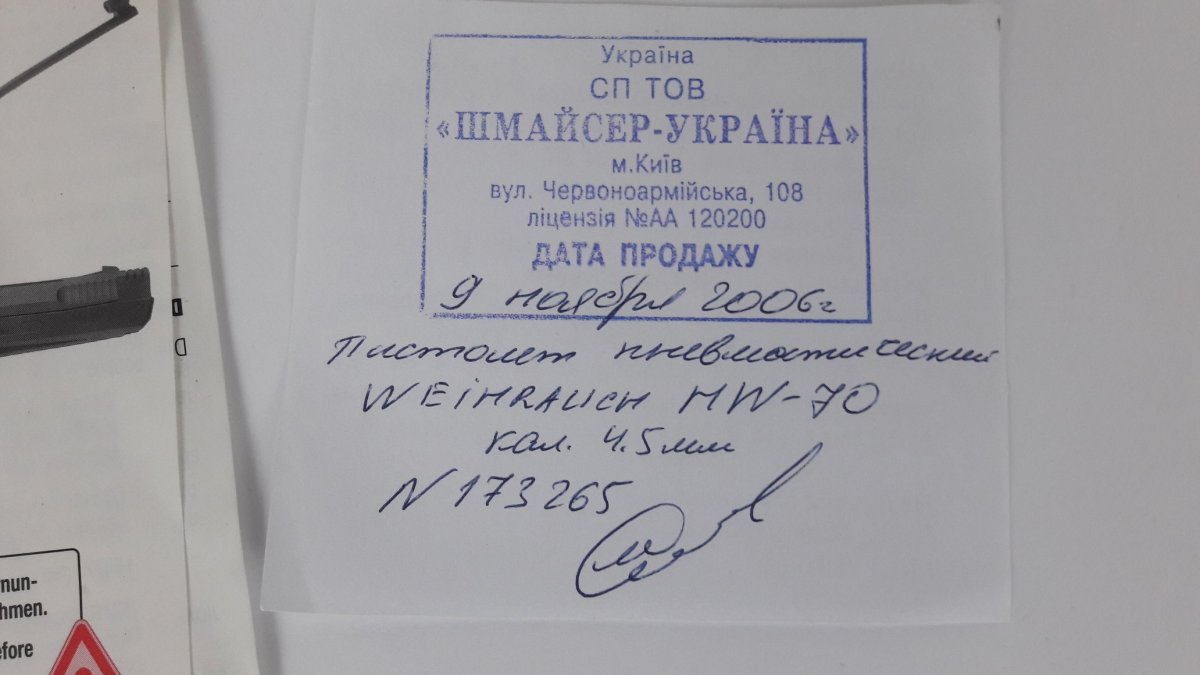 Україна
СП ТОВ
«ШМАЙСЕР-УКРАЇНА»
м.Київ
вул. Червоноармійська, 108
ліцензія №АА 120200
ДАТА ПРОДАЖУ
9 ноября 2006г
Пистолет пневматический
WEIHRAUCH HW-70
кал. 4.5мм
N 173265
D
nun-
hmen.
efore